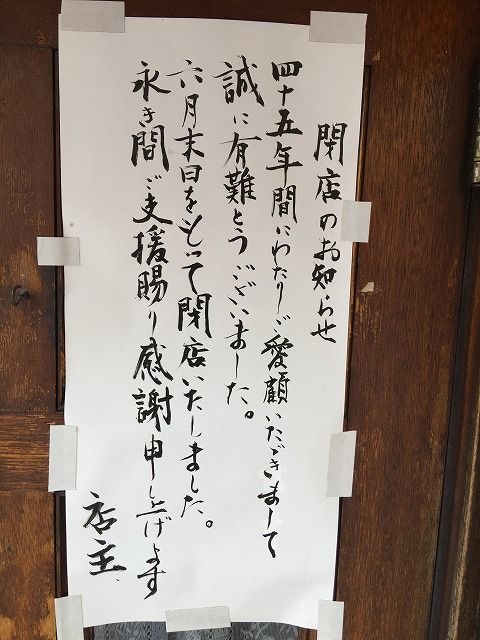 閉店のお知らせ
四十五年間にわたりご愛顧いただきまして
誠に有難とうございました。
六月末日をもって閉店いたしました。
永き間ご支援賜り感謝申し上げます
店主